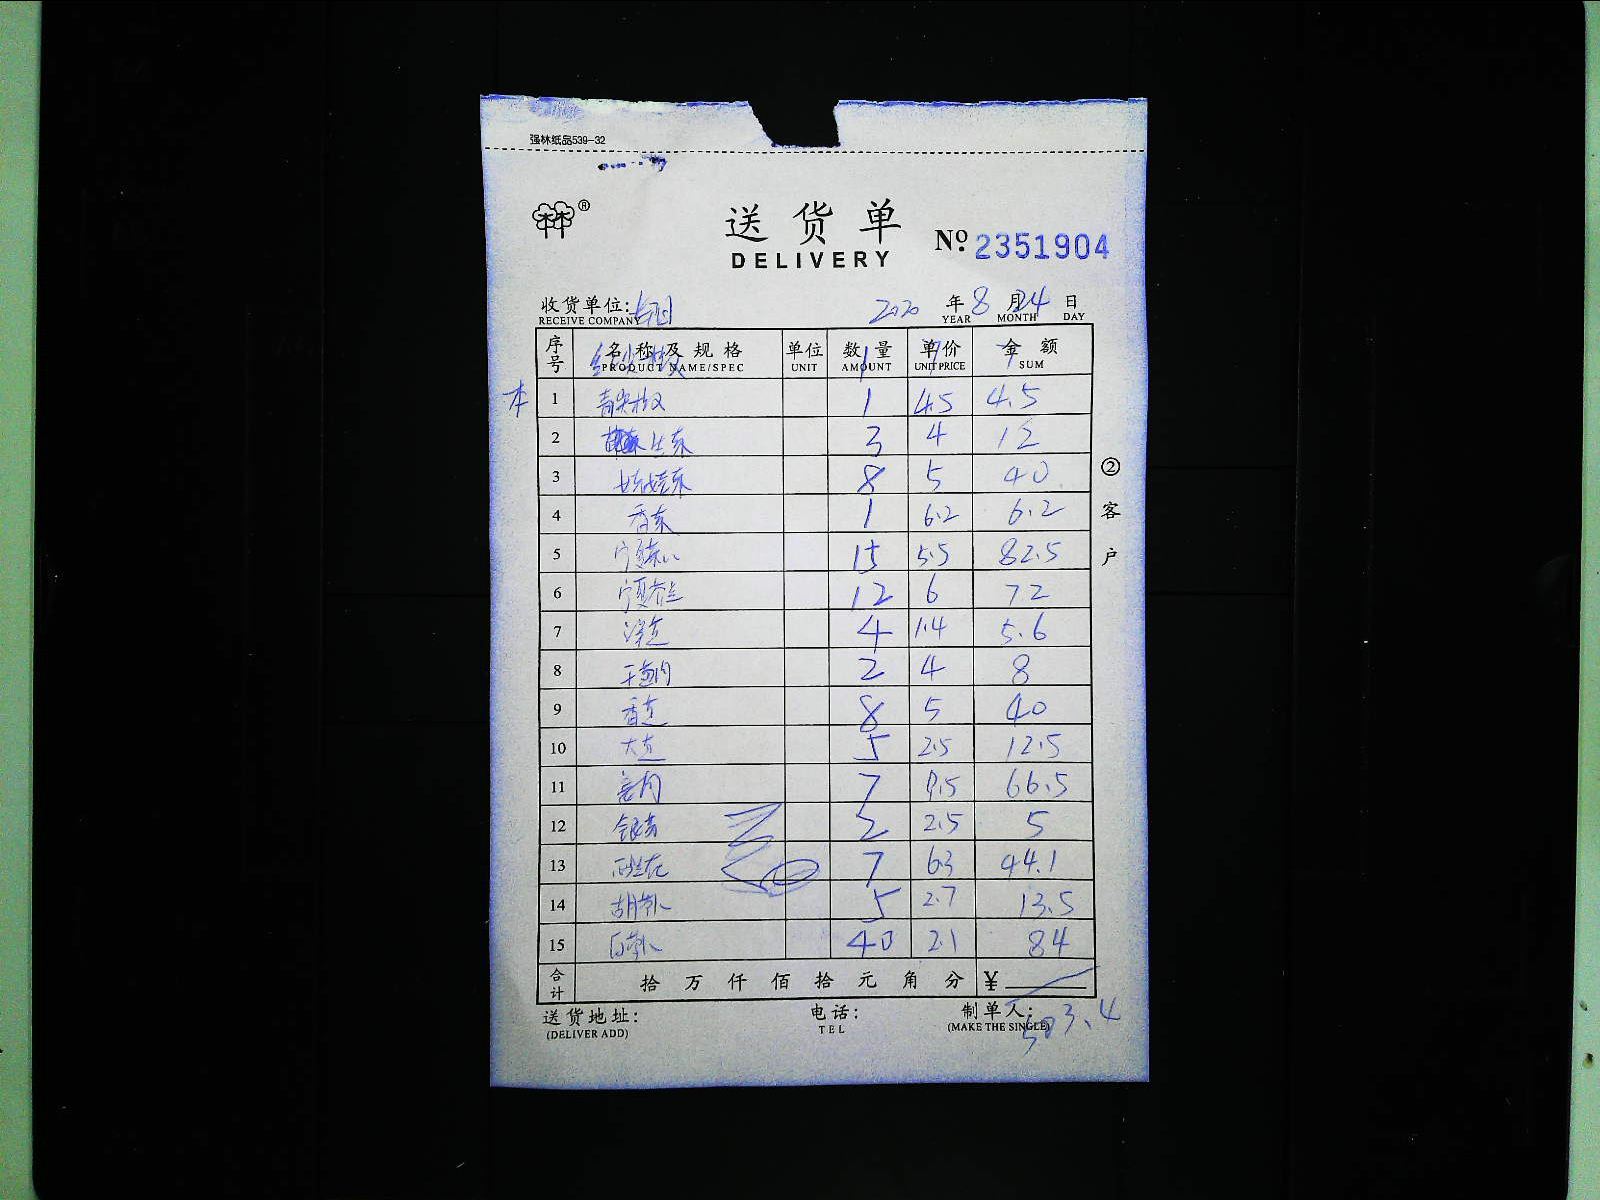 强林纸品539-32
® 送货单
DELIVERY
№ 2351904
收货单位: 2020 年 8 月 24 日
RECEIVE COMPANY YEAR MONTH DAY
序号 名称及规格 单位 数量 单价 金额
PRODUCT NAME/SPEC UNIT AMOUNT UNIT PRICE SUM
1 7 7
本 1 青尖椒 1 4.5 4.5
2 上海 3 4 12
3 娃娃菜 8 5 40
4 香菜 1 6.2 6.2
5 宁夏菜心 15 5.5 82.5
6 宁夏芥兰 12 6 72
7 4 1.4 5.6
8 2 4 8
9 香芝 8 5 40
10 2.5 12.5 5
11 7 9.5 66.5
12 银芽 2 2.5 5
13 西兰花 7 6.3 44.1
14 胡萝卜 5 2.7 13.5
15 白萝卜 40 2.1 84
合计 拾 万 仟 佰 拾 元 角 分 ¥
503.4
送货地址: 电话: 制单人:
(DELIVER ADD) TEL (MAKE THE SINGLE)
②客户